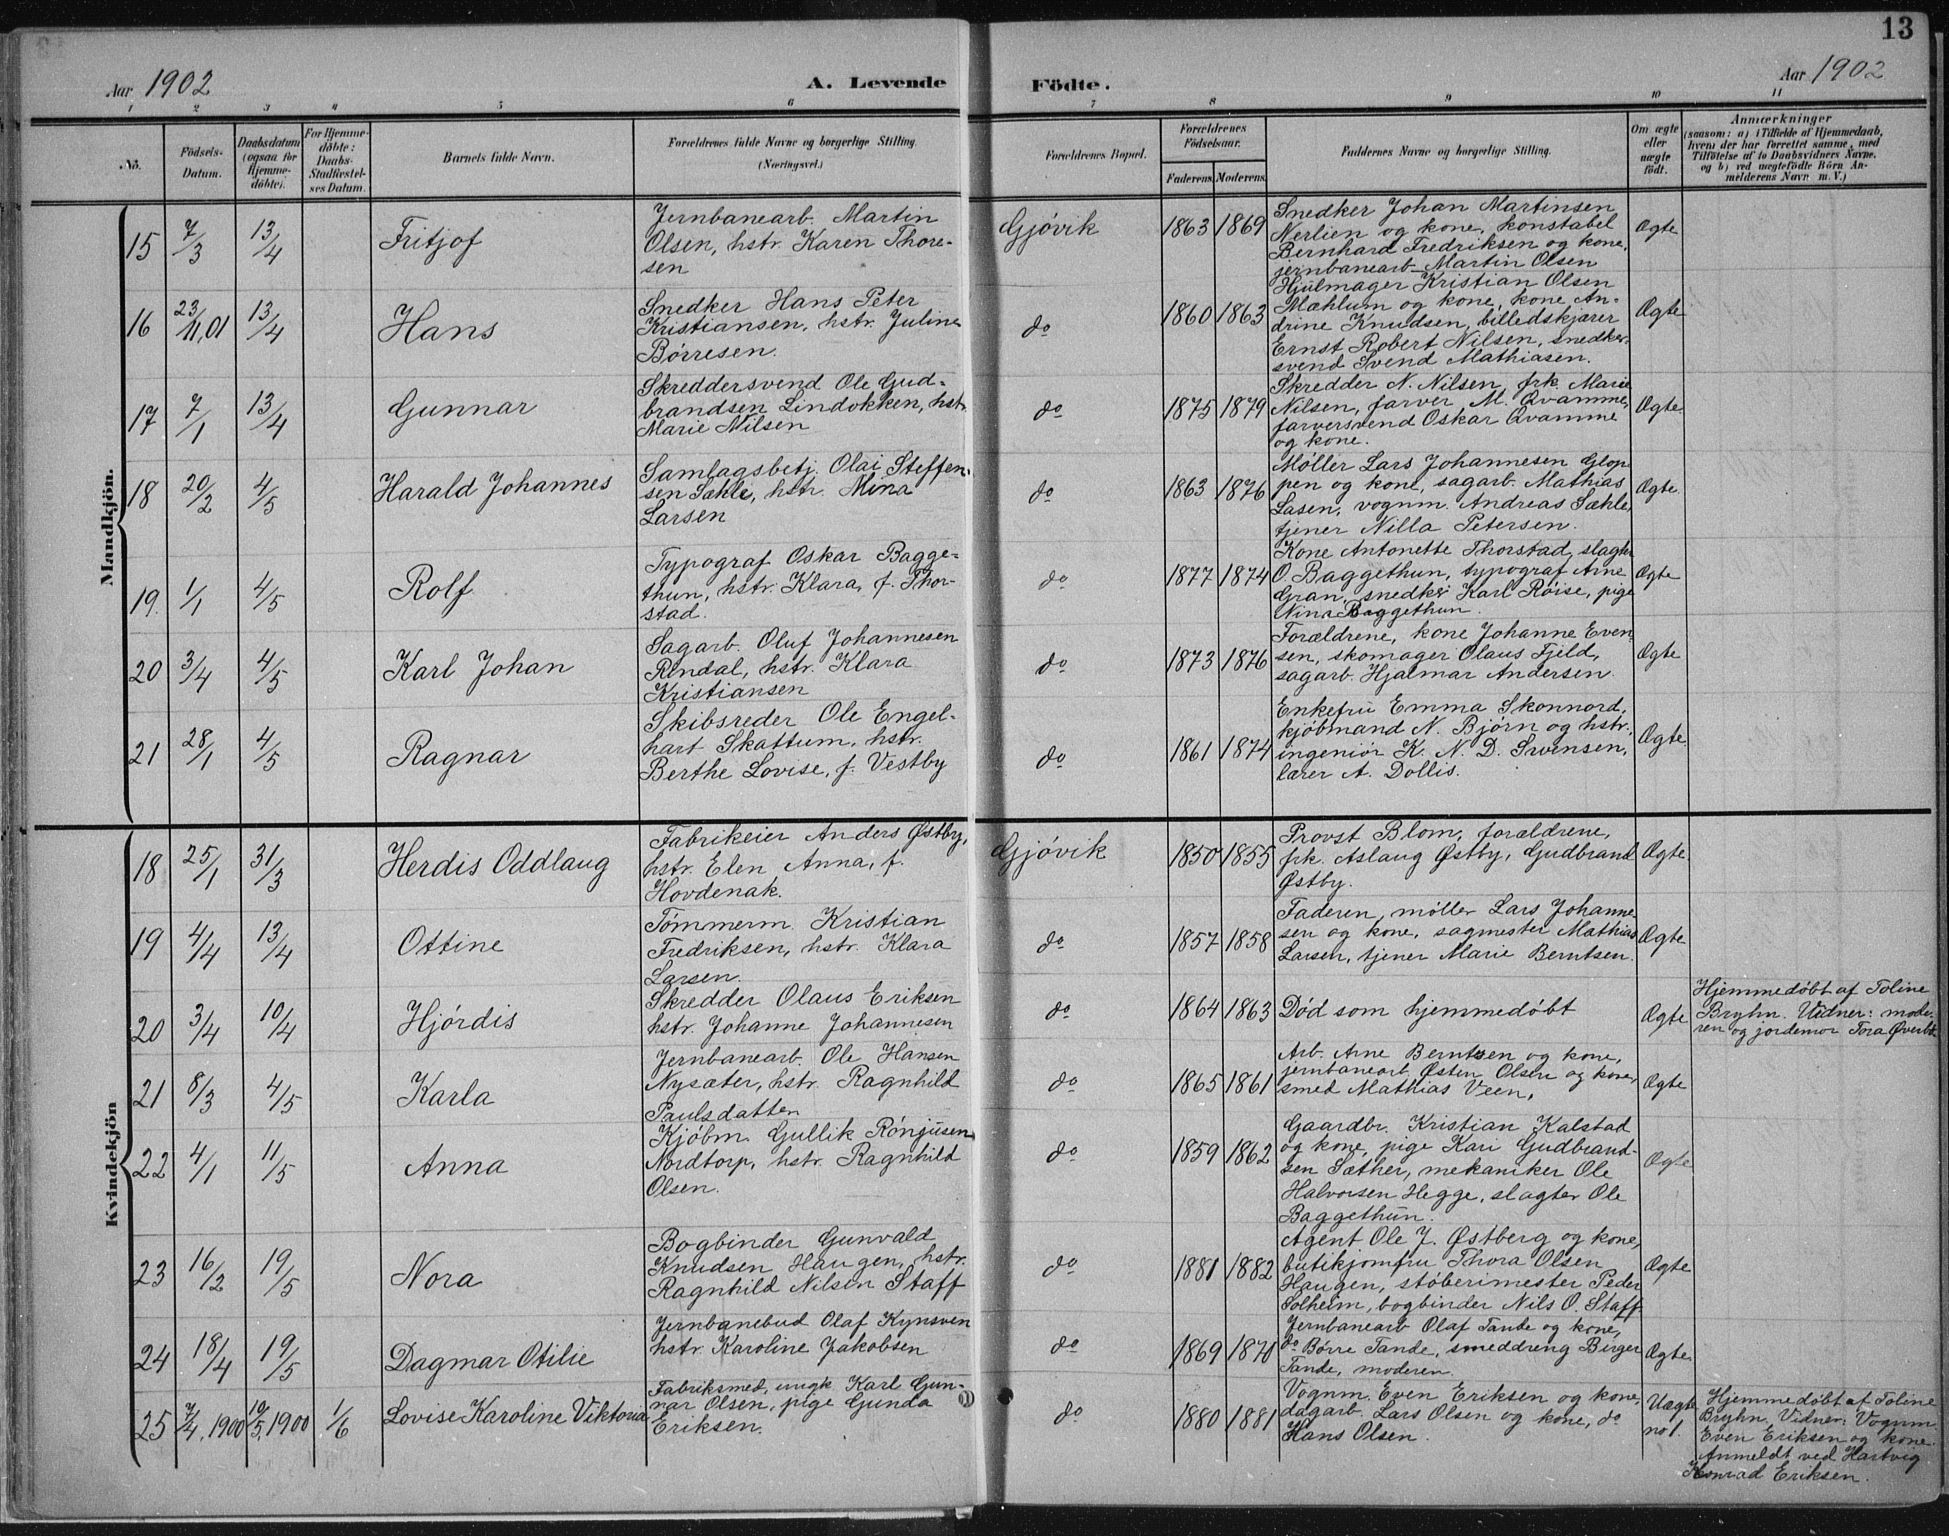 13
Aar 1902
A. Levende
Födte.
Aar 1902
1 2 3 4 5 6 7 8 9 10 11
No.
Födsels-
Datum.
Daabsdatum
(ogsaa for
Hjemme-
döbte).
For Hjemme-
döbte:
Daabs-
Stadfæstel-
ses Datum.
Barnets fulde Navn.
Forældrenes fulde Navne og borgerlige Stilling.
(Næringsvei.)
Forældrenes Bopæl.
Forældrenes
Födselsaar.
Faderens. Moderens.
Faddernes Navne og borgerlige Stilling.
Om ægte
eller
uægte
födt.
Anmærkninger
(saasom: a) i Tilfælde af Hjemmedaab,
hvem der har forrettet samme, med
Tilföielse af to Daabsvidners Navne,
og b) ved uægtefödte Börn An-
melderens Navn m. V.)
Mandkjön.
15 7/3 13/4 Fritjof
Jernbanearb. Martin
Olsen, hstr. Karen Thore-
sen
Gjövik 1863 1869
Snedker Johan Martinsen
Nerlien og kone, konstabel
Bernhard Fredriksen og kone,
jernbanearb. Martin Olsen
Ægte
16 23/11,01 13/4 Hans
Snedker Hans Peter
Kristiansen, hstr. Juline
Börresen.
do 1860 1863
Hjulmager Kristian Olsen
Mæhlum og kone, kone An-
drine Knudsen, billedskjærer
Ernst Robert Nilsen, snedker-
svend Svend Mathiasen.
Ægte
17 7/1 13/4 Gunnar
Skreddersvend Ole Gud-
brandsen Lindokken, hstr.
Marie Nilsen
do 1875 1879
Skredder N. Nilsen, frk. Marie
Nilsen, farver M. Qvamme,
farversvend Oskar Qvamme
og kone.
Ægte
18 20/2 4/5 Harald Johannes
Samlagsbetj. Olai Steffen-
sen Sæhle, hstr. Mina
Larsen
do 1863 1876
Møller Lars Johannesen Glop
pen og kone, sagarb. Mathias
Lasen, vognm. Andreas Sæhle,
tjener Nilla Petersen.
Ægte
19. 1/1 4/5 Rolf
Typograf Oskar Bagge-
thun, hstr. Klara, f. Thor-
stad.
do 1877 1874
Kone Antonette Thorstad, slagter
O. Baggethun, typograf Arne
Gran, snedker Karl Røise, pige
Nina Baggethun.
Ægte
20 3/4 4/5 Karl Johan
Sagarb. Oluf Johannesen
Rendal, hstr. Klara
Kristiansen
do 1873 1876
Forældrene, kone Johanne Even-
sen, skomager Olaus Fjeld,
sagarb. Hjalmar Andersen.
Ægte
21 28/1 4/5 Ragnar
Skibsreder Ole Engel-
hart Skattum, hstr.
Berthe Lovise, f. Vestby
do 1861 1874
Enkefru Emma Skonnord,
kjöbmand N. Bjørn og hstr.,
ingeniör K. N. D. Svensen,
lærer A. Dollis.
Ægte
Kvindekjön
18 25/1 31/3 Herdis Oddlaug
Fabrikeier Anders Østby,
hstr. Elen Anna, f.
Hovdenak.
Gjövik 1850 1855
Provst Blom, forældrene,
frk. Aslaug Østby, Gudbrand
Østby.
Ægte
19 4/4 13/4 Ottine
Tømmerm. Kristian
Fredriksen, hstr. Klara
Larsen.
do 1857 1858
Faderen, møller Lars Johanne
sen og kone, sagmester Mathias
Larsen, tjener Marie Berntsen.
Ægte
20 3/4 10/4 Hjördis
Skredder Olaus Eriksen
hstr. Johanne Johannesen
do 1864 1863
Död som hjemmedöbt
Ægte
Hjemmedöbt af Toline
Bryhn. Vidner: mode-
ren og jordemor Tora Øverbø
21 8/3 4/5 Karla
Jernbanearb. Ole Hansen
Nysæter, hstr. Ragnhild
Paulsdatter
do 1865 1861
Arb. Arne Berntsen og kone,
jernbanearb. Østen Olsen og kone,
smed Mathias Veen.
Ægte
22 4/1 11/5 Anna
Kjöbm. Gullik
Nordtorp, hstr. Ragnhild
Olsen.
do 1859 1862
Gaardbr. Kristian Kalstad
og kone, pige Kari Gudbrand-
sen Sæther, mekaniker Ole
Halvorsen Hegge, slagter Ole
Baggethun.
Ægte
23 16/2 19/5 Nora
Bogbinder Gunvald
Knudsen Haugen, hstr.
Ragnhild Nilsen Staff
do 1881 1882
Agent Ole J. Østberg og kone,
butikjomfru Thora Olsen
Haugen, støberimester Peder
Solheim, bogbinder Nils O. Staff
Ægte
24 18/4 19/5 Dagmar Otilie
Jernbanebud Olaf Kynsven
hstr. Karoline Jakobsen
do 1869 1870
Jernbanearb Olaf Tande og kone,
do Børre Tande, smeddreng Birger
Tande, moderen.
Ægte
25 7/4, 1900 19/5, 1900 1/6 Lovise Karoline Viktoria
Fabriksmed, ungk. Karl Gun-
nar Olsen, pige Gunda
Eriksen.
do 1880 1881
Vognm. Even Eriksen og kone,
dagarb. Lars Olsen og kone, do
Hans Olsen.
Uægte
no 1.
Hjemmedöbt af Toline
Bryhn. Vidner: Vognm.
Even Eriksen og kone.
Anmeldt ved Hartvig
Konrad Eriksen.